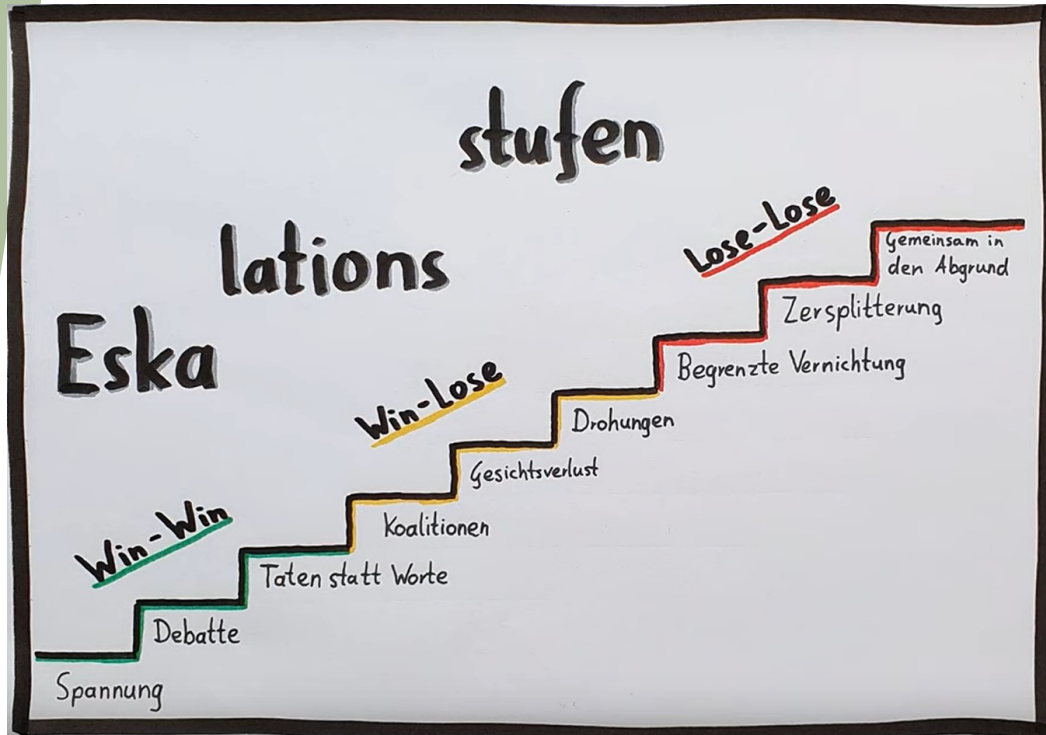 Eska
lations
stufen
Win-Win
Win-Lose
Lose-Lose
Spannung
Debatte
Taten statt Worte
Koalitionen
Gesichtsverlust
Drohungen
Begrenzte Vernichtung
Zersplitterung
Gemeinsam in
den Abgrund